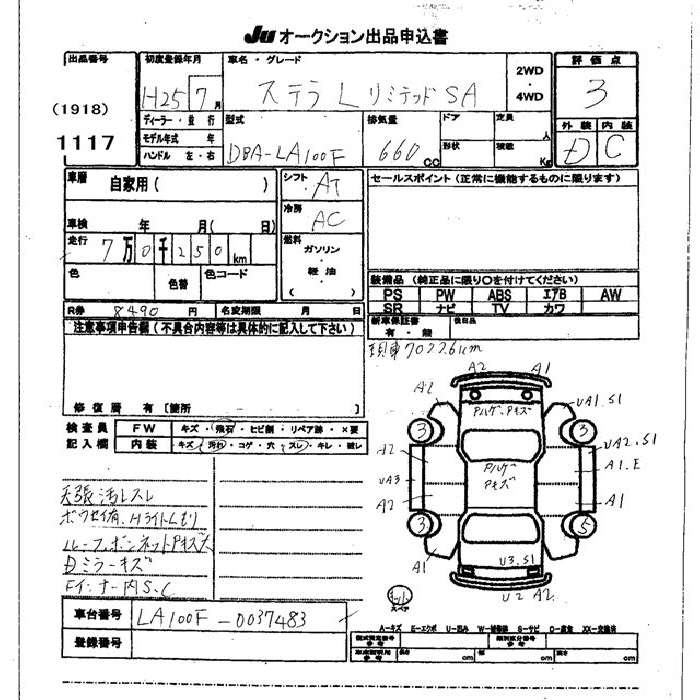 Ju オークション出品申込書
出品番号 初度登録年月 車名・グレード 2WD・4WD 評価点
(1918) H25 7月 ステラ L リミテッド SA 3
1117 ディーラー・並行 型式 排気量 ドア 定員 人 外装 内装
モデル年式 年 DBA-LA100F 660CC 形状 積載 Kg D C
ハンドル 左・右
車歴 自家用( ) シフト AT セールスポイント(正常に機能するものに限ります)
冷房 AC
車検 年 月( 日)
走行 7万0千250km 燃料 ガソリン・軽油・( )
色 色替 色コード 装備品(純正品に限り○を付けてください)
PS PW ABS エアB AW
R券 8490円 名変期限 月 日 SR ナビ TV カワ
注意事項申告欄(不具合内容等は具体的に記入して下さい) 新車保証書 有・無 後日品
現車70226km
修復歴 有[箇所 ]
検査員 FW キズ・飛石・ヒビ割・リペア跡・×要
記入欄 内装 キズ・汚れ・コゲ・穴・スレ・キレ・破レ
A2 A1
A2 UA1.S1
Pハゲ.Pキズ
3 3
A2 UA2.S1
Pハゲ Pキズ
UA3 A1.E
A2 A1
3 5
A1 U3.S1
U2 A2
天張汚レスレ
ボウセイ有.Hライトくもり
ルーフ.ボンネットPキズ大
Dミラーキズ
Fインナー内S.C
車台番号 LA100F-0037483
登録番号
A-キズ E-エクボ U-凹み W-補修跡 S-サビ C-腐食 XX-交換済
長さ cm 幅 cm 高さ cm